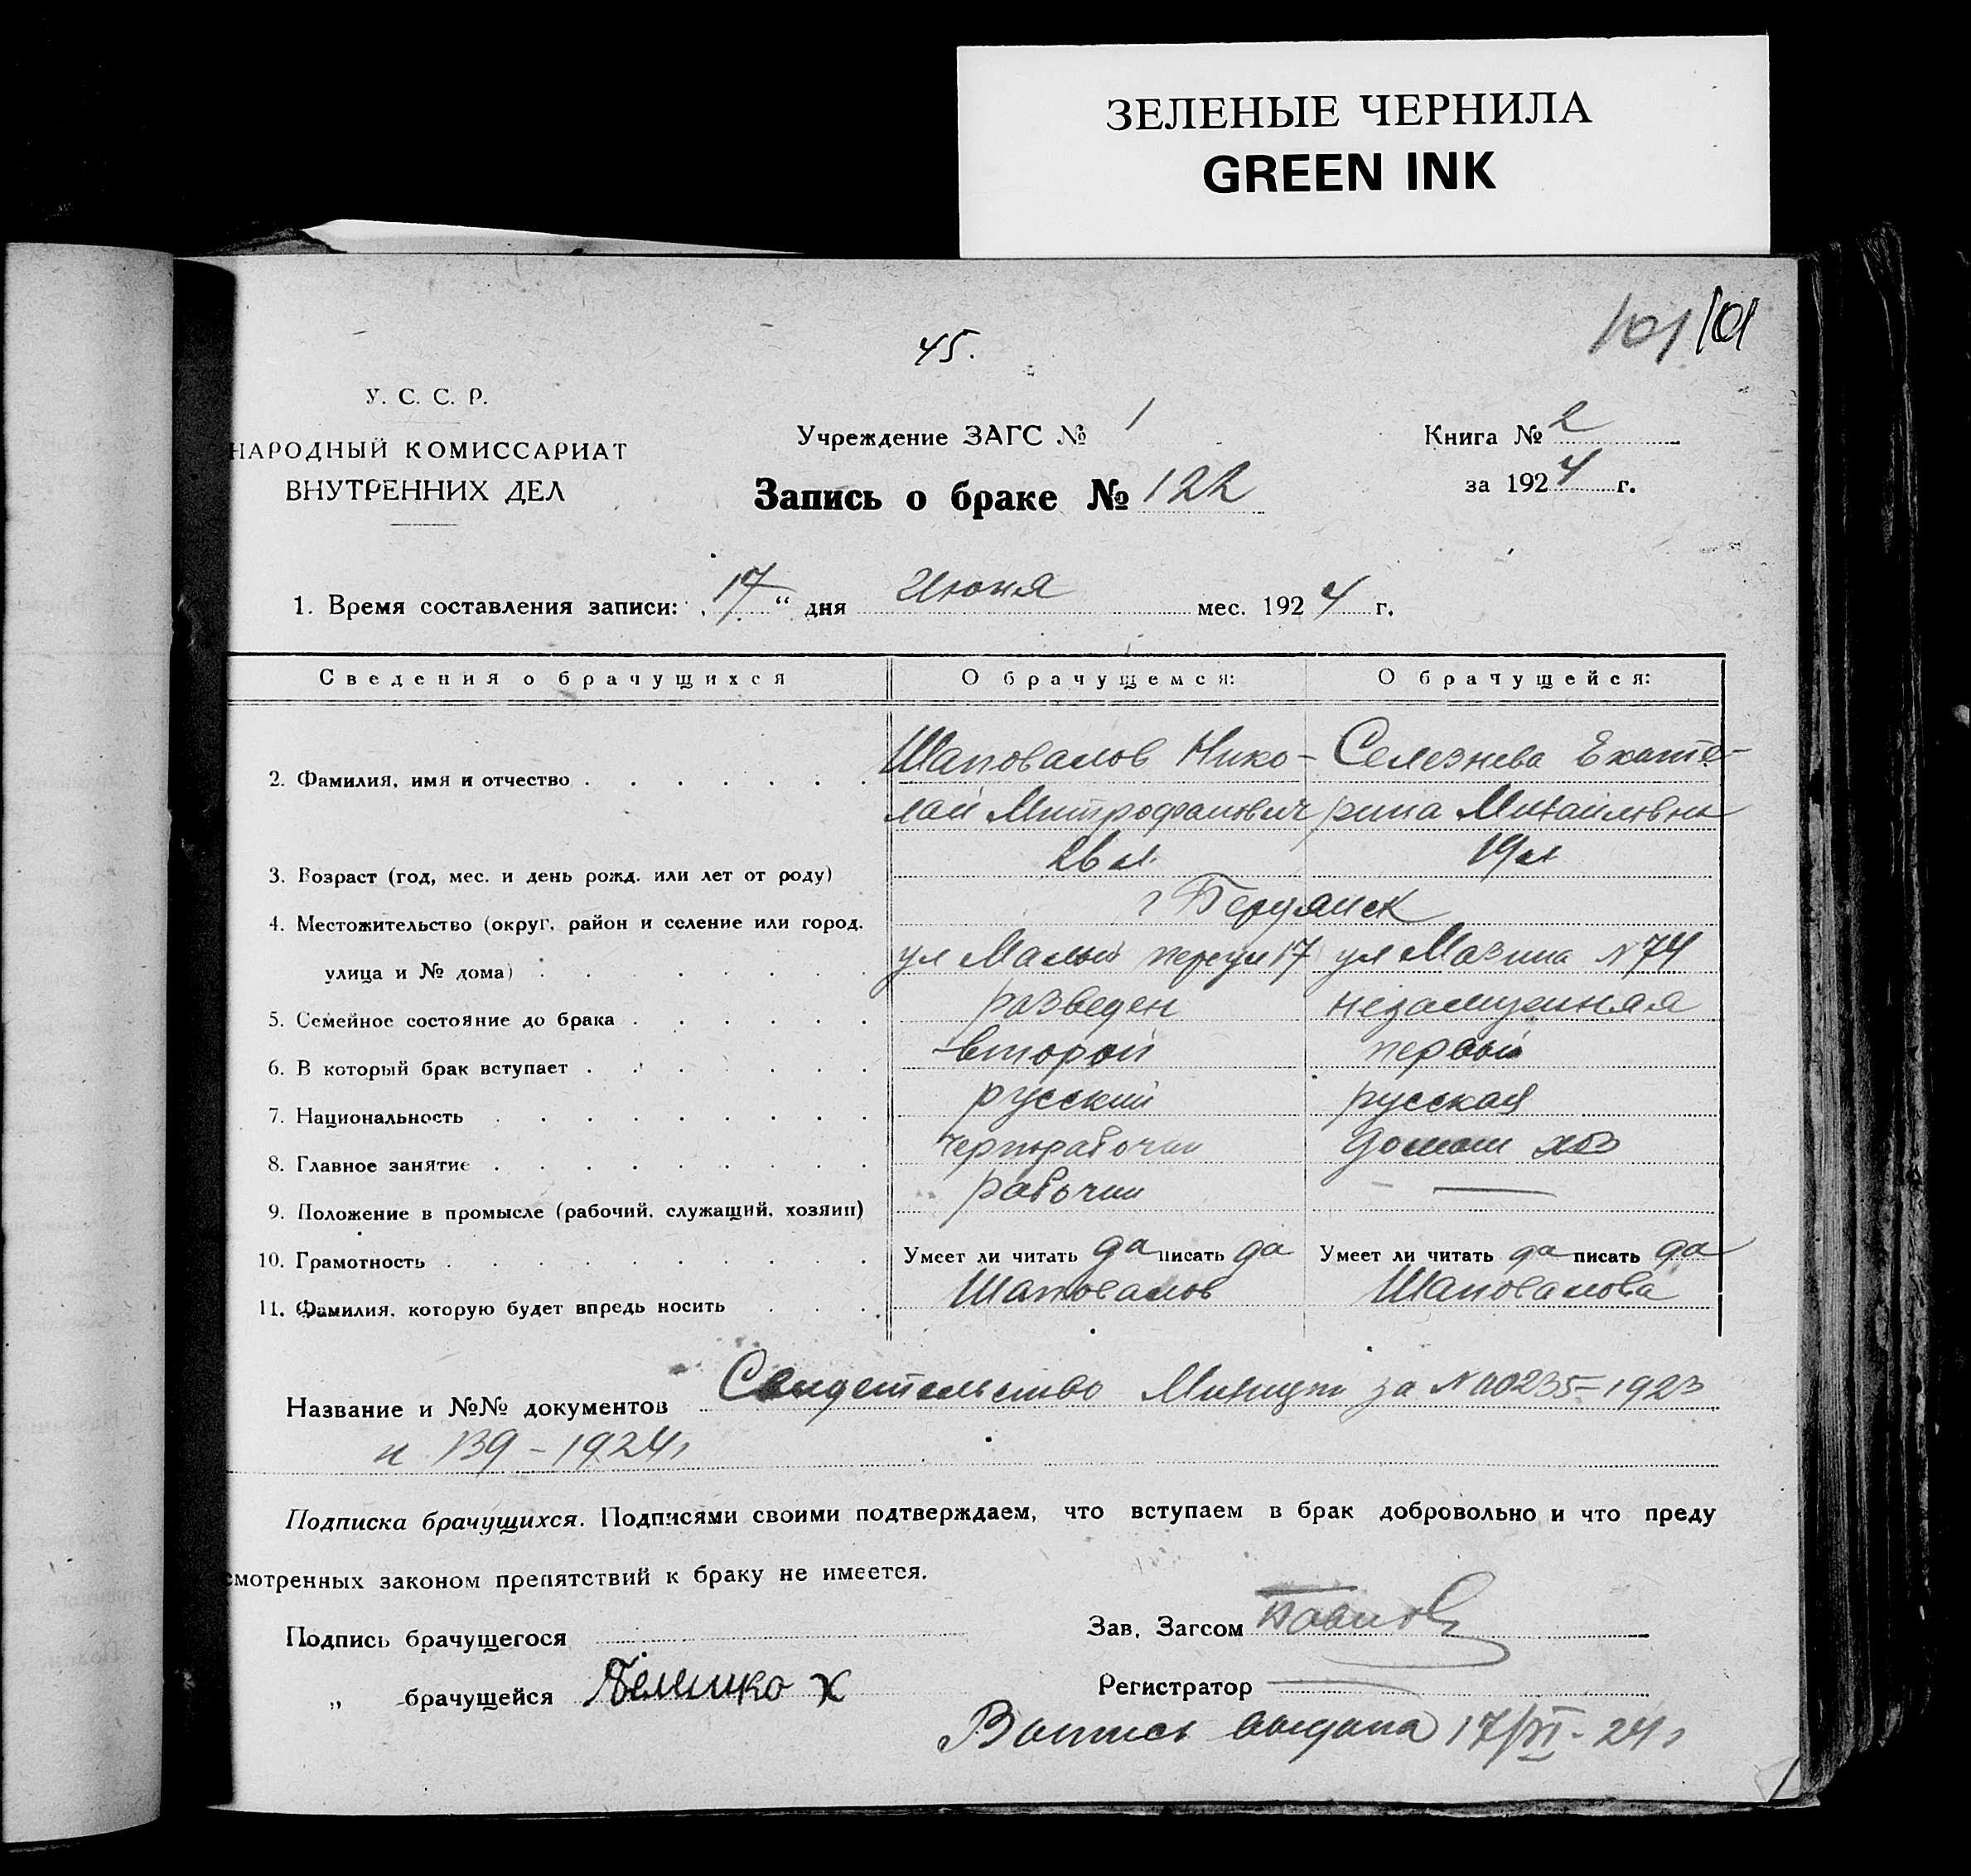 ЗЕЛЕНЫЕ ЧЕРНИЛА
GREEN INK
101 101
45.
У. С. С. Р.
НАРОДНЫЙ КОМИССАРИАТ
ВНУТРЕННИХ ДЕЛ
Учреждение ЗАГС № 1
Запись о браке № 122
Книга № 2
за 1924 г.
1. Время составления записи: „17“ дня Июня мес. 1924 г.
Сведения о брачущихся О брачущемся: О брачущейся:
2. Фамилия, имя и отчество Шаповалов Нико- Селезнева Екате-
лай Митрофанович рина Михаиловна
3. Возраст (год, мес. и день рожд. или лет от роду) 26 л. 19 л
4. Местожительство (округ, район и селение или город, г Бердянск
улица и № дома) ул Малый переул 17 ул Мазина № 74
5. Семейное состояние до брака разведен незамужняя
6. В который брак вступает второй первый
7. Национальность русский русская
8. Главное занятие чернорабочий домаш хоз
9. Положение в промысле (рабочий, служащий, хозяин) рабочий —
10. Грамотность Умеет ли читать да писать да Умеет ли читать да писать да
11. Фамилия, которую будет впредь носить Шаповалов Шаповалова
Название и №№ документов Свидетельство за № 10235-1923
и 139-1924г
Подписка брачущихся. Подписями своими подтверждаем, что вступаем в брак добровольно и что преду
смотренных законом препятствий к браку не имеется.
Подпись брачущегося
„ брачущейся
Зав. Загсом
Регистратор
Выпись выдана 17/VI-24г